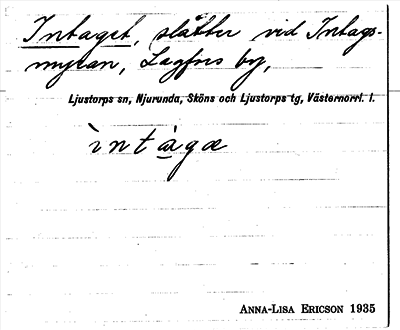 Intaget, slåtter vid Intags-
myran, Lagfors by,
Ljustorps sn, Njurunda, Sköns och Ljustorps tg, Västernorrl. l.
ìntàgæ
ANNA-LISA ERICSON 1935